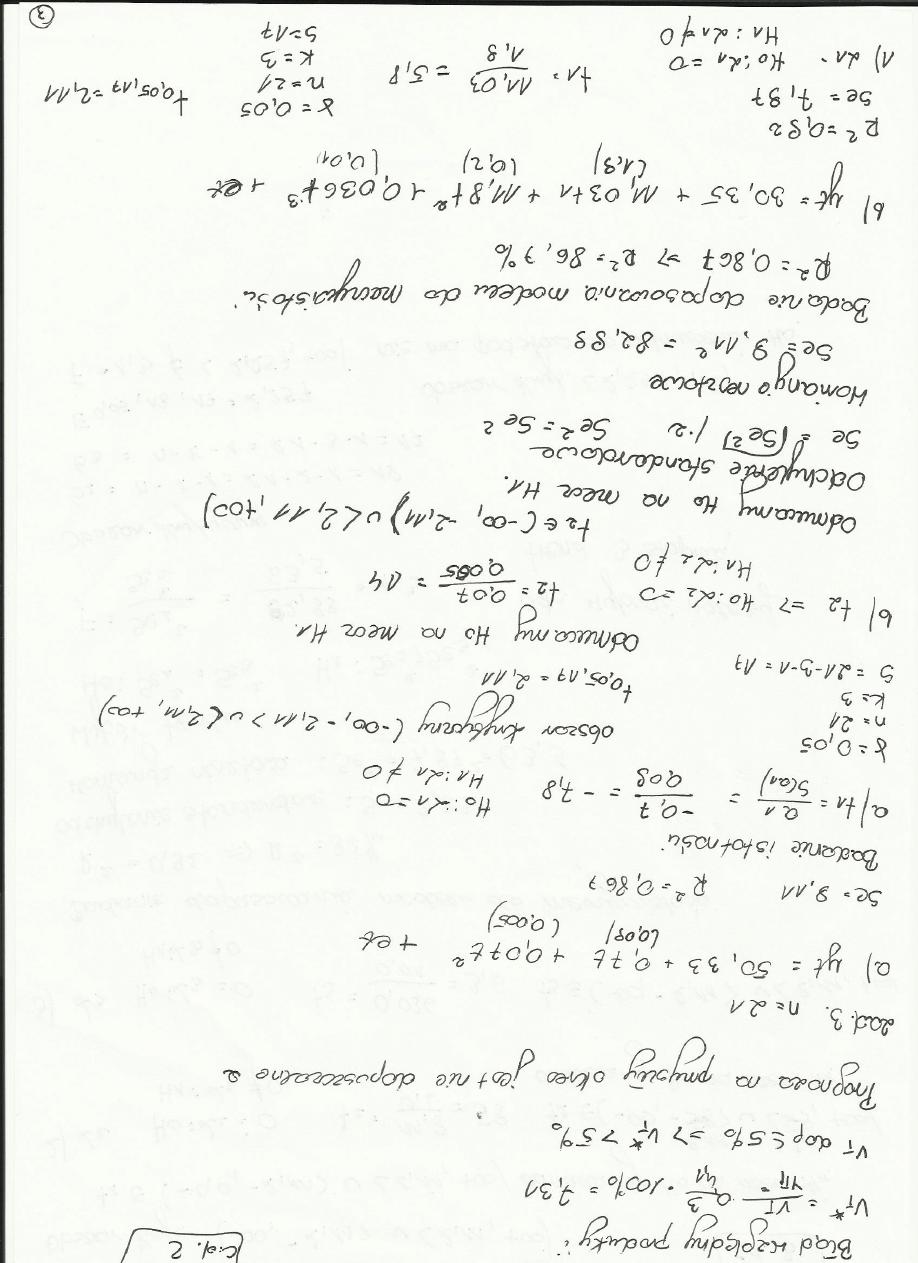 c.d. 2
Błąd względny predykcji:
V*T = VT / YTP = 0,3 / 4,1 · 100% = 7,31
VT dop ≤ 5% => V*T > 5%
Prognoza na przyszły okres jest nie dopuszczalne 2
zad. 3. n = 21
a) yt = 50,33 + 0,7t + 0,07t² + et
(0,09) (0,005)
Se = 9,11 R² = 0,867
Badanie istotności:
a) t1 = a1 / S(a1) = -0,7 / 0,09 = -7,8 H0: α1 = 0
H1: α1 ≠ 0
γ = 0,05
n = 21 obszar krytyczny (-∞, -2,11> ∪ <2,11, +∞)
k = 3
S = 21-3-1 = 17 t0,05,17 = 2,11
Odrzucamy H0 na rzecz H1.
b) t2 => H0: α2 = 0 t2 = 0,07 / 0,005 = 14
H1: α2 ≠ 0
t2 ∈ (-∞, -2,11) ∪ <2,11, +∞)
Odrzucamy H0 na rzecz H1.
Odchylenie standardowe
Se = √(Se²) /·2 Se² = Se²
Wariancja resztowa
Se = 9,11² = 82,99
Badanie dopasowania modelu do rzeczywistości:
R² = 0,867 => R² = 86,7%
b) yt = 30,35 + 11,03t1 + 11,8t² + 0,036t³ + et
(1,9) (0,2) (0,01)
R² = 0,92
Se = 7,97
1) α1 - H0: α1 = 0
H1: α1 ≠ 0
t1 = 11,03 / 1,9 = 5,8
γ = 0,05
n = 21
k = 3
S = 17
t0,05,17 = 2,11
3